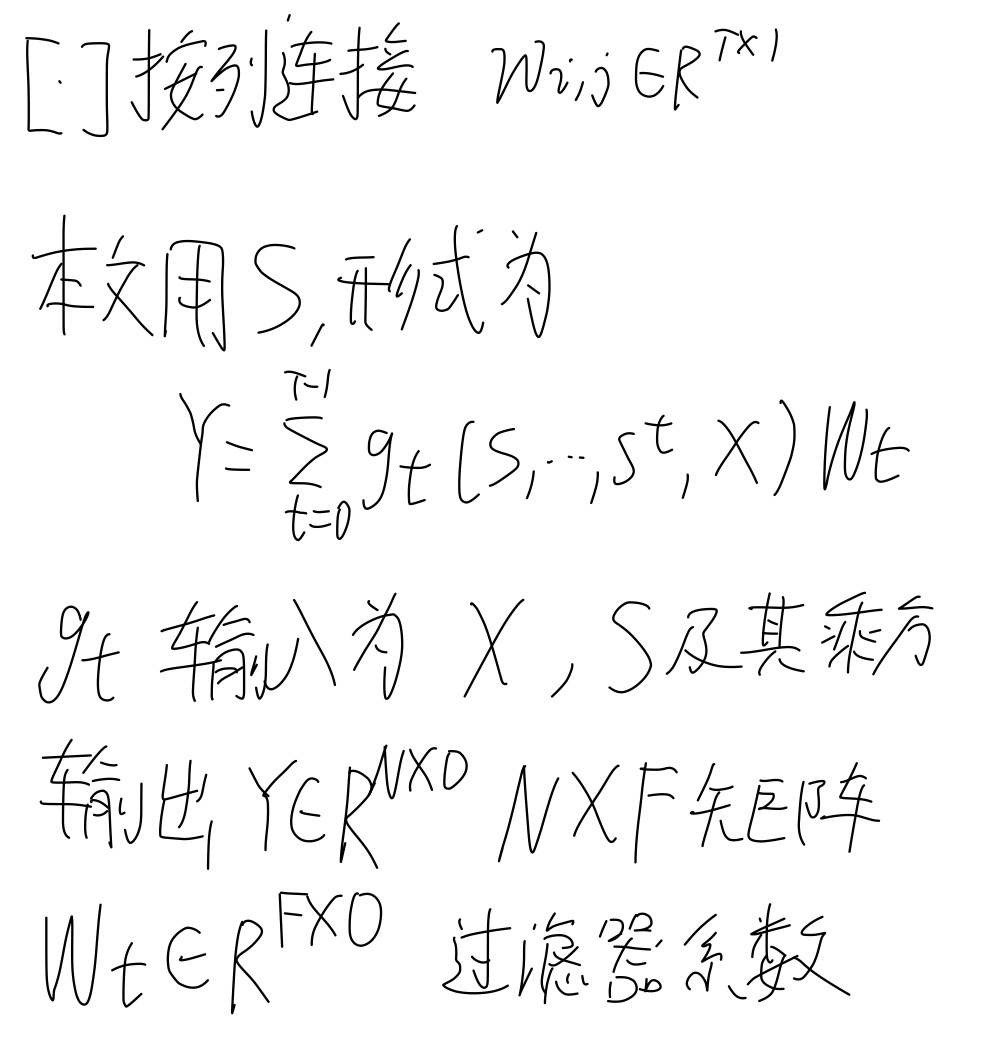 [·]按列连接 Wi,j∈R^{T×1}
本文用S,形式为
Y=∑_{t=0}^{T-1} g_t(S,…,S^t,X)W_t
g_t 输入为 X,S及其乘方
输出 Y∈R^{N×O} N×F矩阵
W_t∈R^{F×O} 过滤器系数